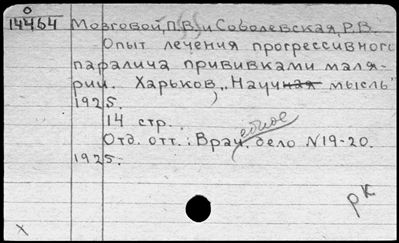 О
14464 Мозговой, П.В. и Соболевская, Р.В.
Опыт лечения прогрессивного
паралича прививками маля-
рии. Харьков, "Научная мысль"
1925.
14 стр.
Отд. отт.: Врач. дело N19-20.
ебное
1925.
рк
х